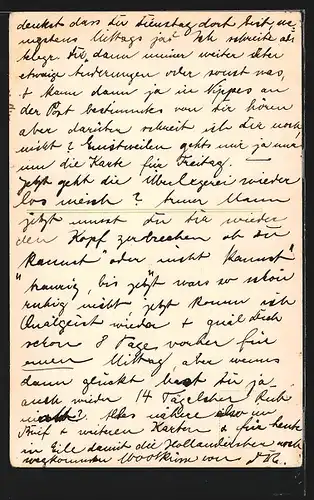 denkst dass du Dienstag dort bist we-
nigstens Mittags ja? Ich schreibe als
dann immer weiter über
etwaige Änderungen oder sonst was,
+ kann dann ja in Nippes an
der Post bestimmtes von dir hören
aber darüber schreibt ich dir noch
nicht? Einstweilen gehts mir ja nur
um die Karte für Freitag. —
Jetzt geht die Überlegerei wieder
los? Armer Mann
jetzt musst du dir wieder
den Kopf zerbrechen ob du
"kannst" oder nicht kannst"
"traurig, bis jetzt wars so schön
ruhig nicht jetzt komm ich
Quälgeist wieder + quäl dich
schon 8 Tage vorher für
einen Mittag aber wenns
dann glückt hast du ja
auch wieder 14 Tage Ruh
nicht? Alles nähere also im
Brief + weiteren Karten + für heute
in Eile damit die noch
wegkommen von